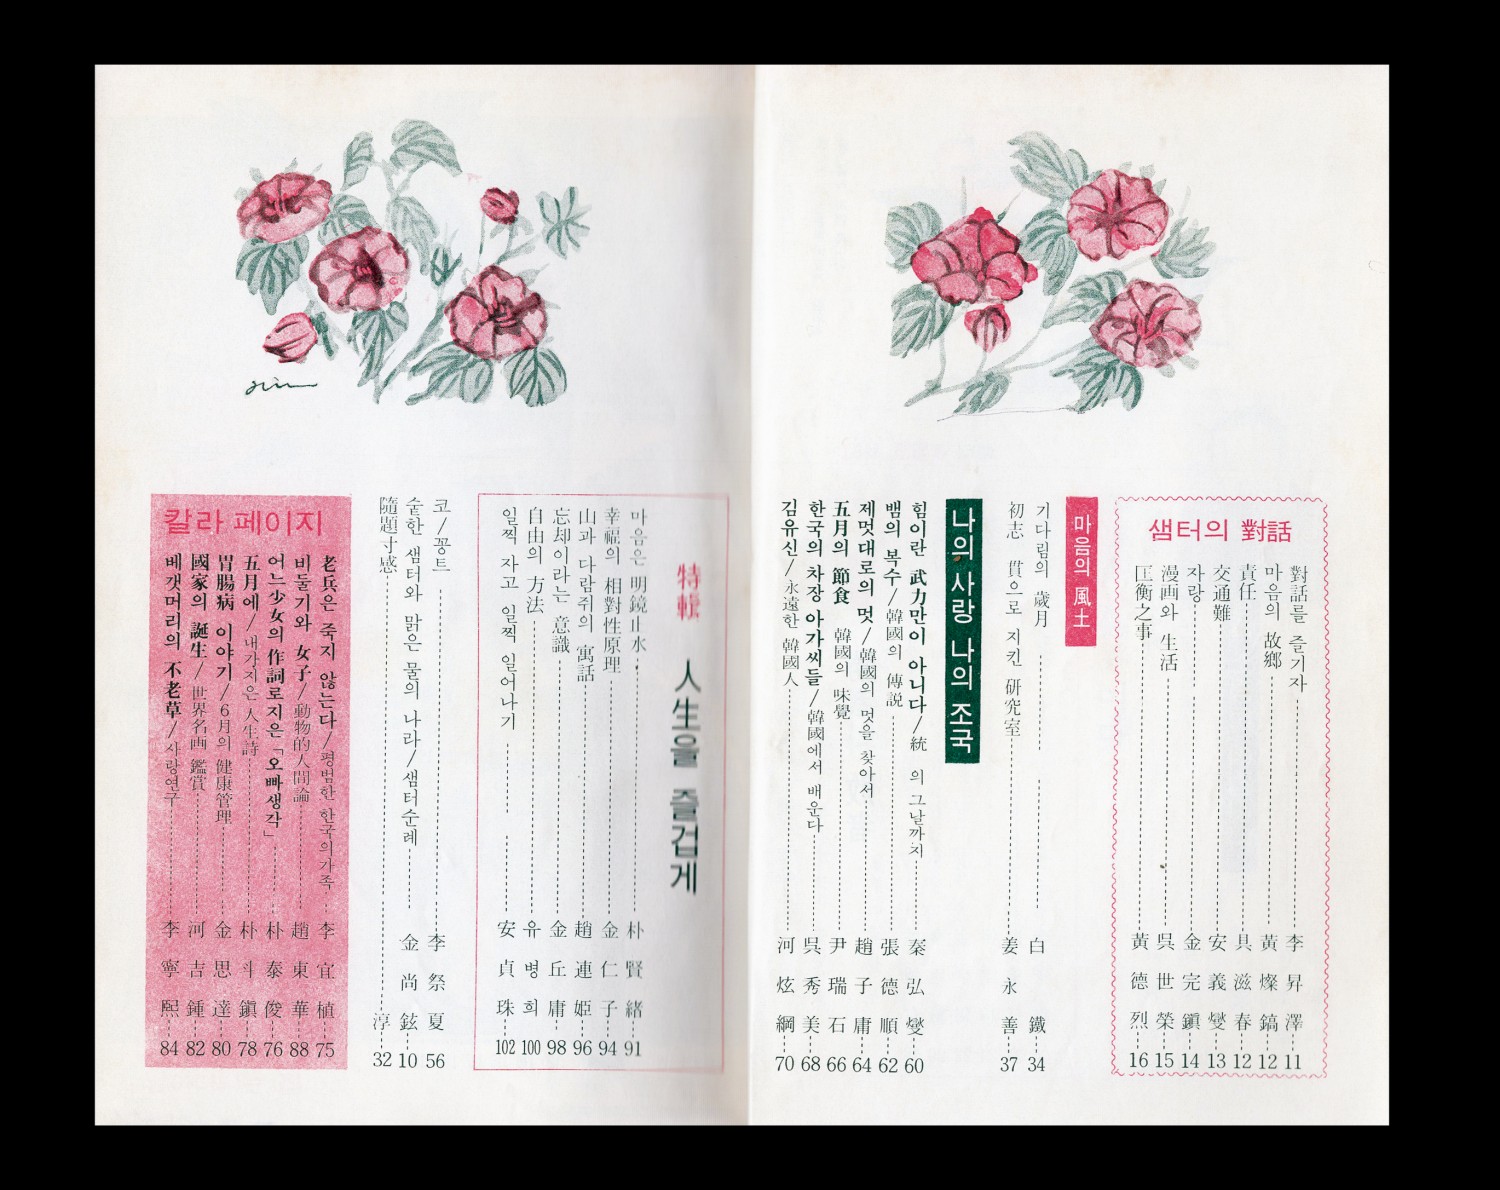 샘터의 對話
對話를 즐기자 李昇澤 11
마음의 故鄕 黃燦鎬 12
責任 具滋春 12
交通難 安義燮 13
자랑 金完鎭 14
漫画와 生活 吳世榮 15
匡衡之事 黃德烈 16
마음의 風土
기다림의 歲月 白鐵 34
初志 貫으로 지킨 研究室 姜永善 37
나의 사랑 나의 조국
힘이란 武力만이 아니다/統 의 그날까지 秦弘燮 60
뱀의 복수/韓國의 傳説 張德順 62
제멋대로의 멋/韓國의 멋을 찾아서 趙子庸 64
五月의 節食 韓國의 味覺 尹瑞石 66
한국의 차장 아가씨들/韓國에서 배운다 吳秀美 68
김유신/永遠한 韓國人 河炫綱 70
特輯 人生을 즐겁게
마음은 明鏡止水 朴賢緖 91
幸福의 相對性原理 金仁子 94
山과 다람쥐의 寓話 趙連姬 96
忘却이라는 意識 金丘庸 98
自由의 方法 유병희 100
일찍 자고 일찍 일어나기 安貞珠 102
코/꽁트 李祭夏 56
숱한 샘터와 맑은 물의 나라/샘터순례 金尚鉉 10
隨題寸感 淳 32
칼라 페이지
老兵은 죽지 않는다/평범한 한국의가족 李宜植 75
비둘기와 女子/動物的人間論 趙東華 88
어느少女의 作詞로지은「오빠생각」 朴泰俊 76
五月에/내가지은 人生詩 朴斗鎭 78
胃腸病 이야기/6月의 健康管理 金思達 80
國家의 誕生/世界名画 鑑賞 河吉鍾 82
베갯머리의 不老草/사랑연구 李寧熙 84